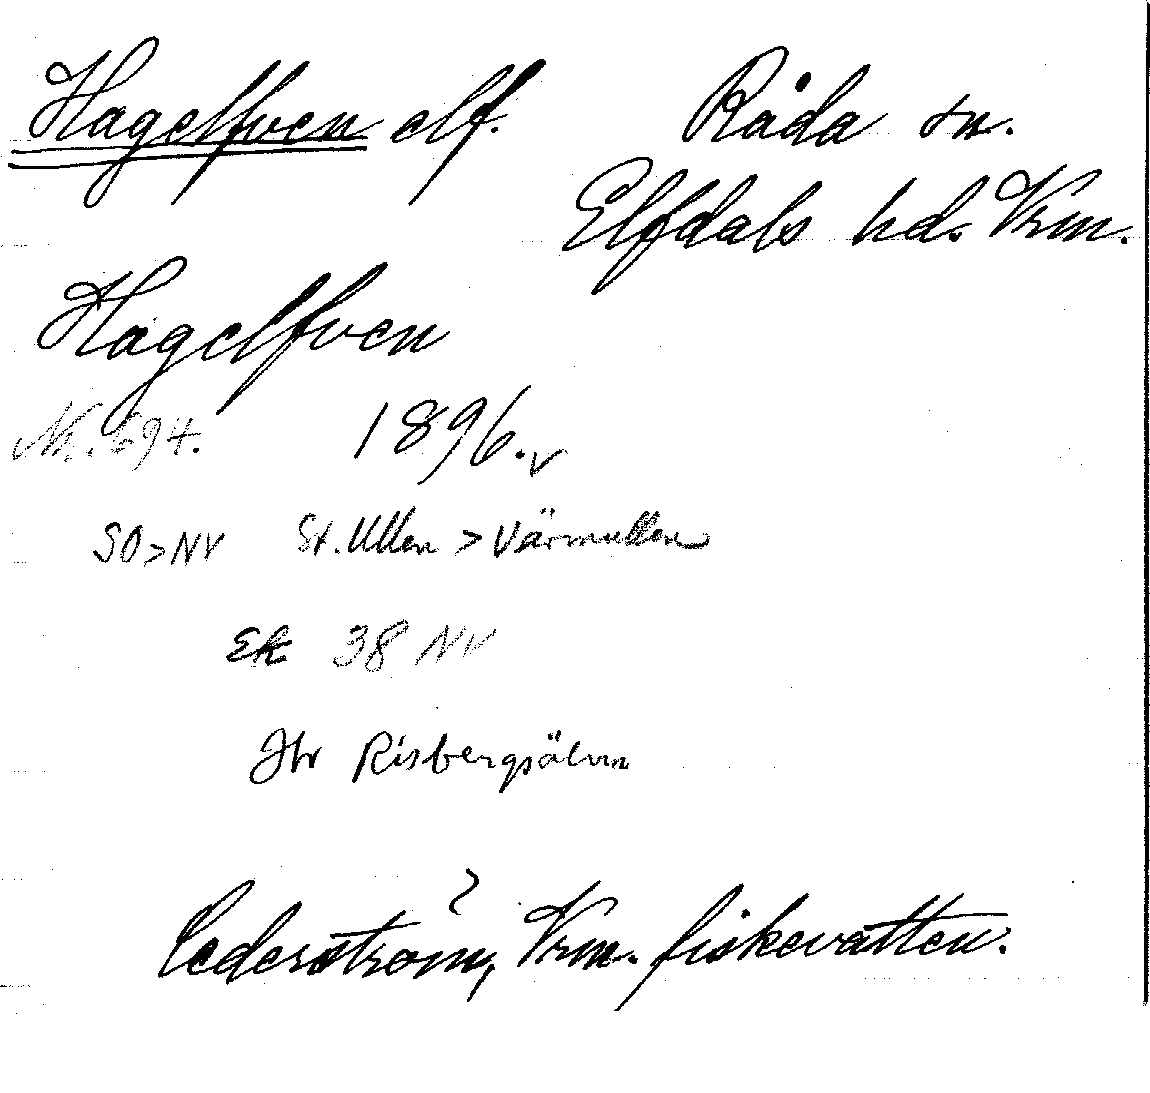 Hagelfven elf. Råda sn.
Elfdals hd. Vrm.
Hagelfven
Nr. 694. 1896. v
SO>NV St. Ullen > Värmullen
Ek 38 NV
Jfr Risbergsälven
Cederström, Vrm. fiskevatten.